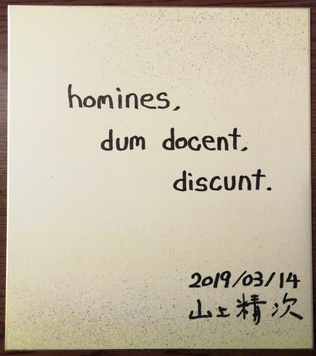 homines,
dum docent,
discunt.
2019/03/14
山上精次